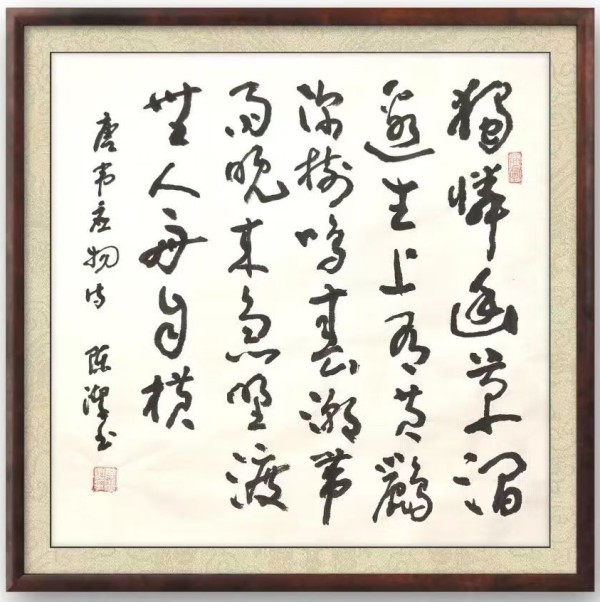 獨憐幽草澗
邊生上有黄鸝
深樹鳴春潮帶
雨晚来急野渡
無人舟自横
唐韦应物诗 陈 书